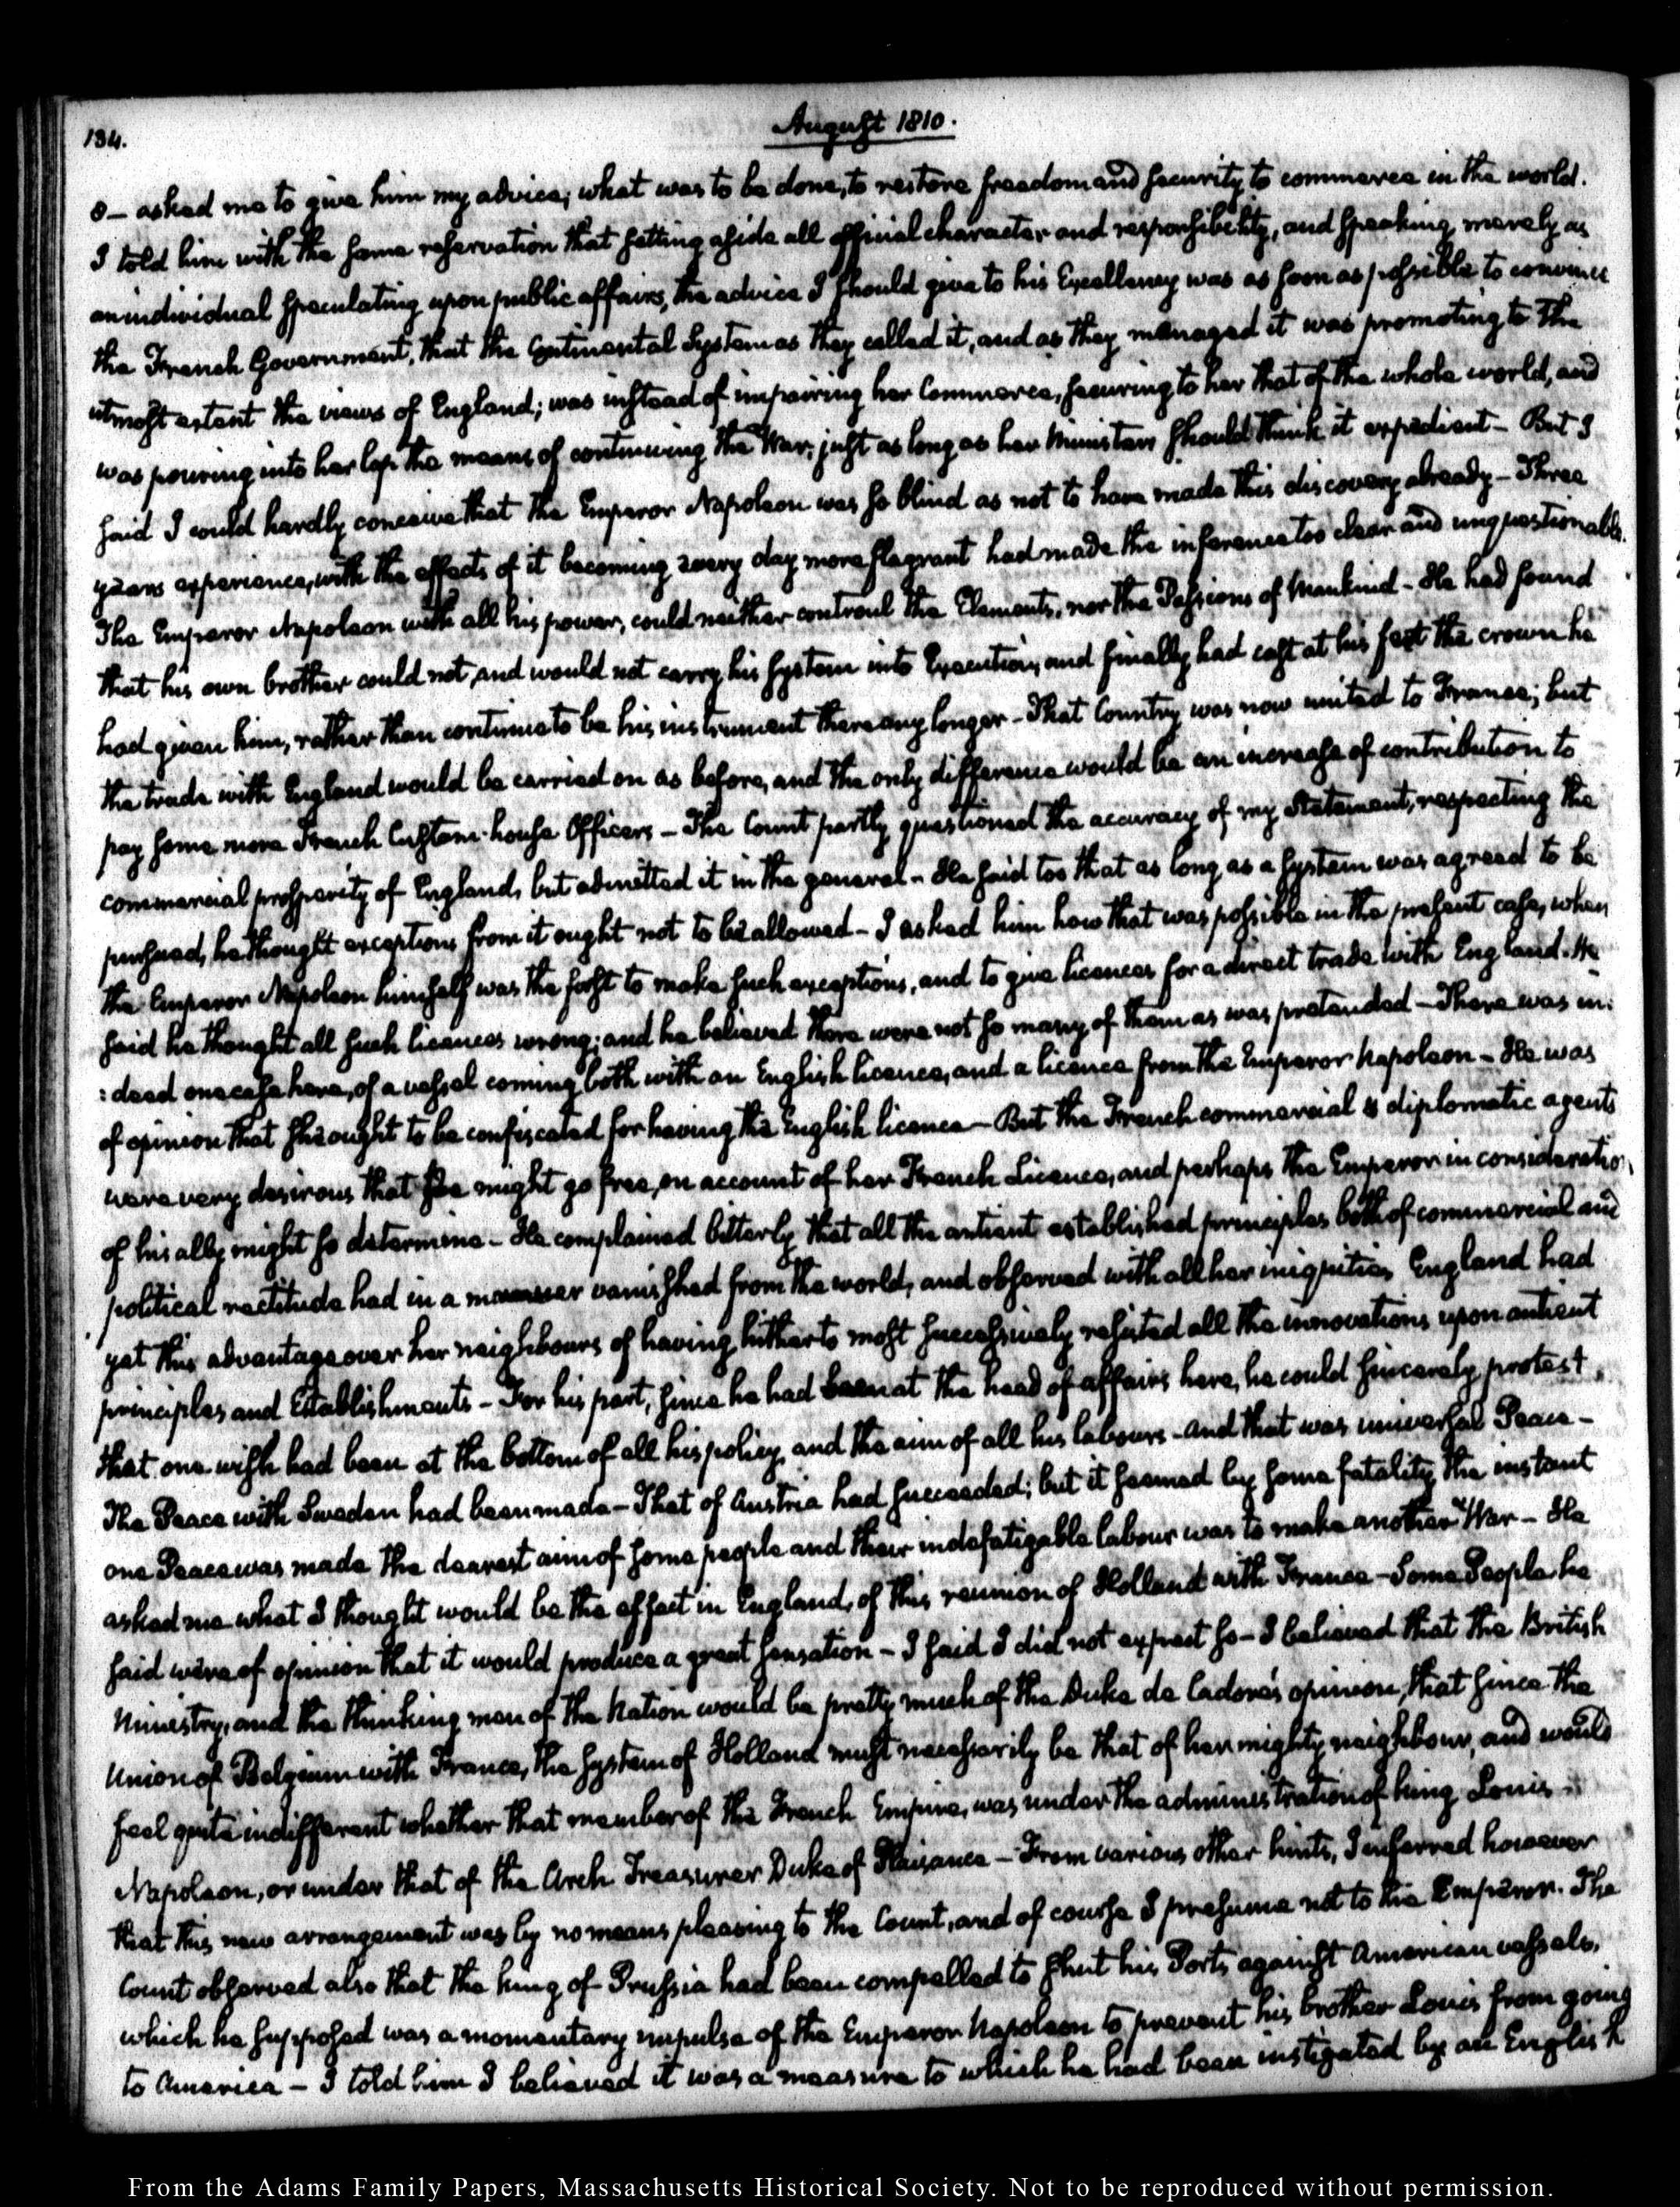 134.
August 1810.
o— asked me to give him my advice; what was to be done, to restore freedom and security to commerce in the world.
I told him with the same reservation that setting aside all official character and responsibility, and speaking merely as
an individual speculating upon public affairs, the advice I should give to his Excellency was as soon as possible to convince
the French Government, that the Continental System as they called it, and as they managed it was promoting to the
utmost extent the views of England; was instead of impairing her Commerce, securing to her that of the whole world, and
was pouring into her lap the means of continuing the War, just as long as her Ministers should think it expedient— But I
said I could hardly conceive that the Emperor Napoleon was so blind as not to have made this discovery already— Three
years experience, with the effects of it becoming every day more flagrant had made the inference too clear and unquestionable.
The Emperor Napoleon with all his power, could neither controul the Elements, nor the Passions of Mankind— He had found
that his own brother could not, and would not carry his system into Execution, and finally had cast at his feet the crown he
had given him, rather than continue to be his instrument there any longer— That Country was now united to France; but
the trade with England would be carried on as before, and the only difference would be an increase of contribution to
pay some more French Custom-house Officers— The Count partly questioned the accuracy of my Statement, respecting the
commercial prosperity of England, but admitted it in the general— He said too that as long as a system was agreed to be
pursued, he thought exceptions from it ought not to be allowed— I asked him how that was possible in the present case, when
the Emperor Napoleon himself was the first to make such exceptions, and to give licences for a direct trade with England. He
said he thought all such licences wrong; and he believed there were not so many of them as was pretended— There was in:
:deed one case here, of a vessel coming both with an English licence, and a licence from the Emperor Napoleon— He was
of opinion that she ought to be confiscated for having the English licence— But the French commercial & diplomatic agents
were very desirous that she might go free, on account of her French Licence, and perhaps the Emperor in consideration
of his ally might so determine— He complained bitterly that all the antient established principles both of commercial and
political rectitude had in a manner vanished from the world, and observed with all her iniquities England had
yet this advantage over her neighbours of having hitherto most successively resisted all the innovations upon antient
principles and Establishments— For his part, since he had been at the head of affairs here, he could sincerely protest
that one wish had been at the bottom of all his policy, and the aim of all his labours— and that was universal Peace—
The Peace with Sweden had been made— That of Austria had succeeded; but it seemed by some fatality the instant
one Peace was made the dearest aim of some people and their indefatigable labour was to make another War— He
asked me what I thought would be the effect in England, of this reunion of Holland with France— Some People he
said were of opinion that it would produce a great sensation— I said I did not expect so— I believed that the British
Ministry, and the thinking men of the Nation would be pretty much of the Duke de Cadore's opinion, that since the
Union of Belgium with France, the system of Holland must necessarily be that of her mighty neighbour, and would
feel quite indifferent whether that member of the French Empire, was under the administration of king Louis
Napoleon, or under that of the Arch Treasurer Duke of Plaisance— From various other hints, I inferred however
that this new arrangement was by no means pleasing to the Count, and of course I presume not to the Emperor. The
Count observed also that the king of Prussia had been compelled to shut his Ports against American vessels,
which he supposed was a momentary impulse of the Emperor Napoleon to prevent his brother Louis from going
to America— I told him I believed it was a measure to which he had been instigated by an English
From the Adams Family Papers, Massachusetts Historical Society. Not to be reproduced without permission.